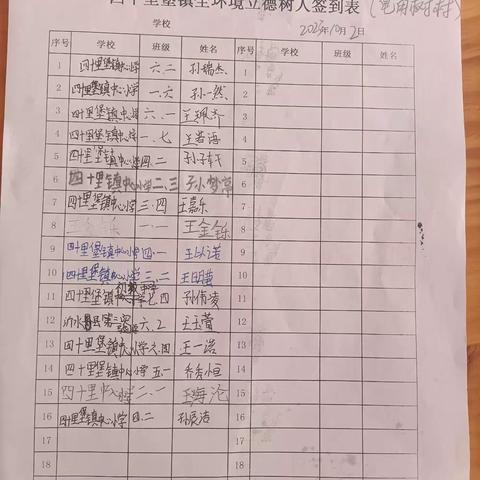 四十里堡镇全环境立德树人签到表
2023年10月2日
学校
序号 学校 班级 姓名 序号 学校 班级 姓名
1 四十里堡镇中心小学 六.二 孙瑞杰 1
2 四十里堡镇中心小学 一.六 孙一然 2
3 四十里堡镇中心小学 六.一 王珮齐 3
4 四十里堡镇中心小学 一.七 王若语 4
5 四十里堡镇中心小学 四.二 5
6 四十里堡镇中心小学 二.三 孙梦 6
7 四十里堡镇中心小学 三.四 王嘉乐 7
8 一.一 王金铄 8
9 四十里堡镇中心小学 四.一 9
10 四十里堡镇中心小学 三.二 王明 10
11 四十里堡镇初级中学 七.四 孙倩凌 11
12 沂水县第三实验 六.2 王玉萱 12
13 四十里堡镇中心小学 六.四 王一诺 13
14 四十里堡镇中心小学 五.一 乔秀恒 14
15 四十里中心小学 二.一 王海沦 15
16 四十里堡镇中心小学 四.二 孙辰洁 16
17 17
18 18